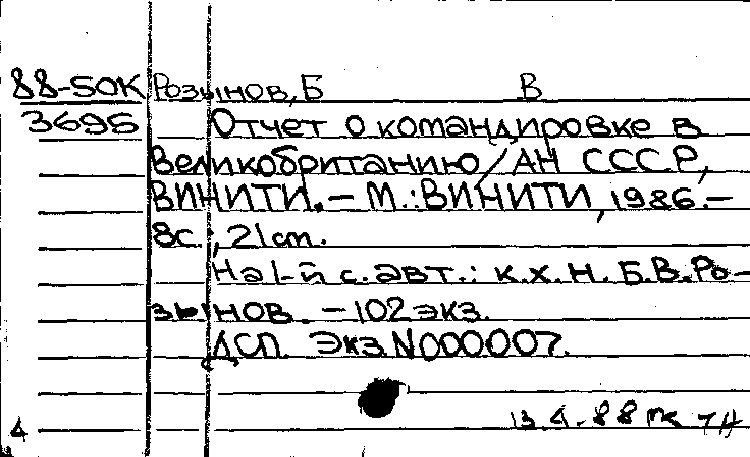 88-50К Розынов, Б В
3695 Отчет о командировке в
Великобританию / АН СССР,
ВИНИТИ. – М.: ВИНИТИ, 1986. –
8с.; 21 cm.
На 1-й с. авт.: к.х.н. Б.В. Ро-
зынов. – 102 экз.
ДСП. Экз. N000007.
13.4.88 пк
4